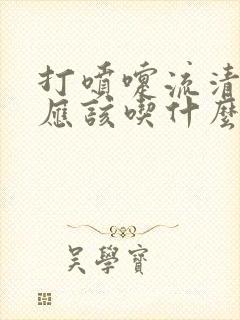 打噴嚏流清
應該喫什麼
吳學寶